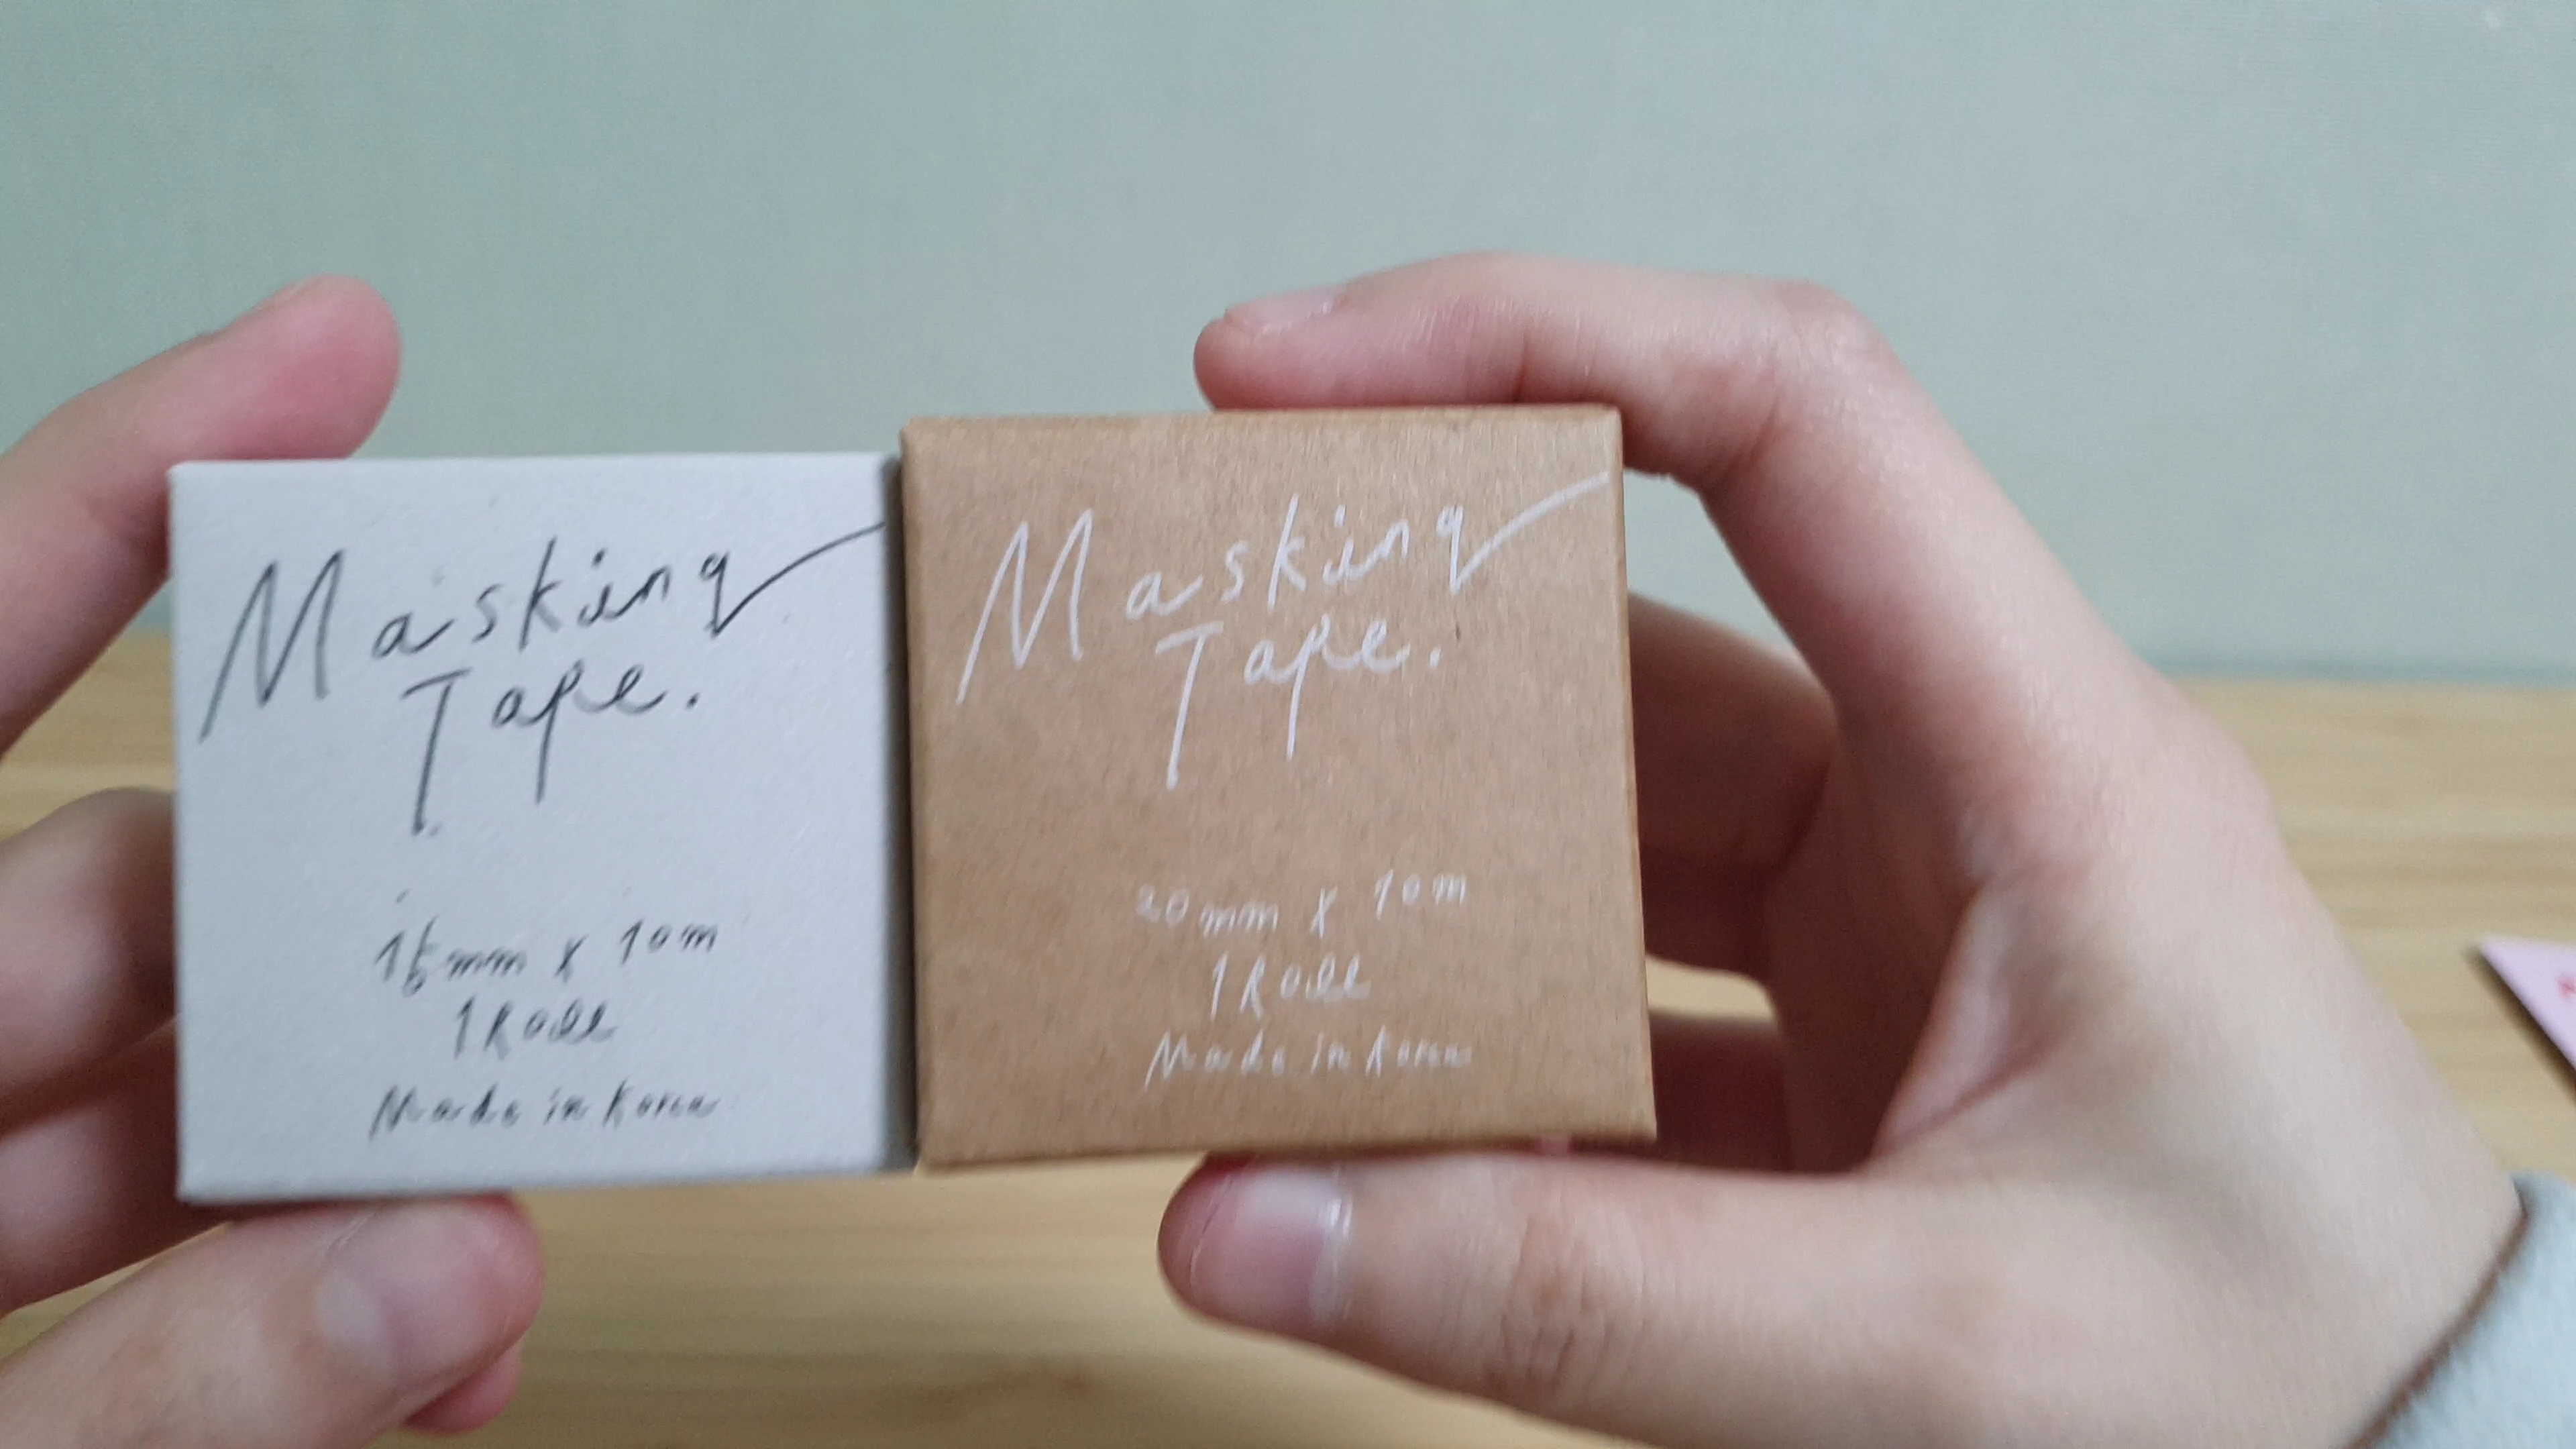 Masking
Tape.
15mm x 10m
1 Roll
Made in Korea
Masking
Tape.
20mm x 10m
1 Roll
Made in Korea